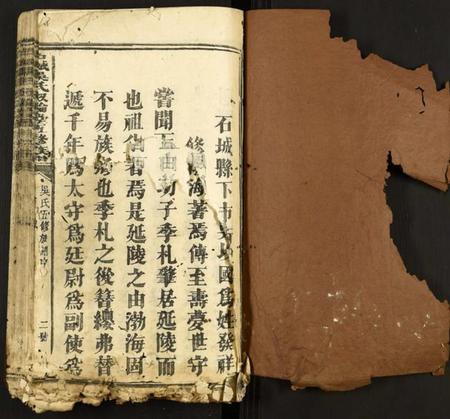 石城縣下市以國爲姓發祥
修海著焉傳至壽夢世守
嘗聞由子季札肇居延陵而
也祖者焉是延陵之由渤海固
不易族也季札之後簪纓弗替
遞千年爲太守爲廷尉爲副使爲
吳氏五修族譜序
二號